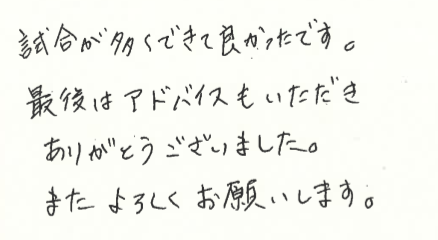 試合が多くできて良かったです。
最後はアドバイスもいただき
ありがとうございました。
また よろしく お願いします。